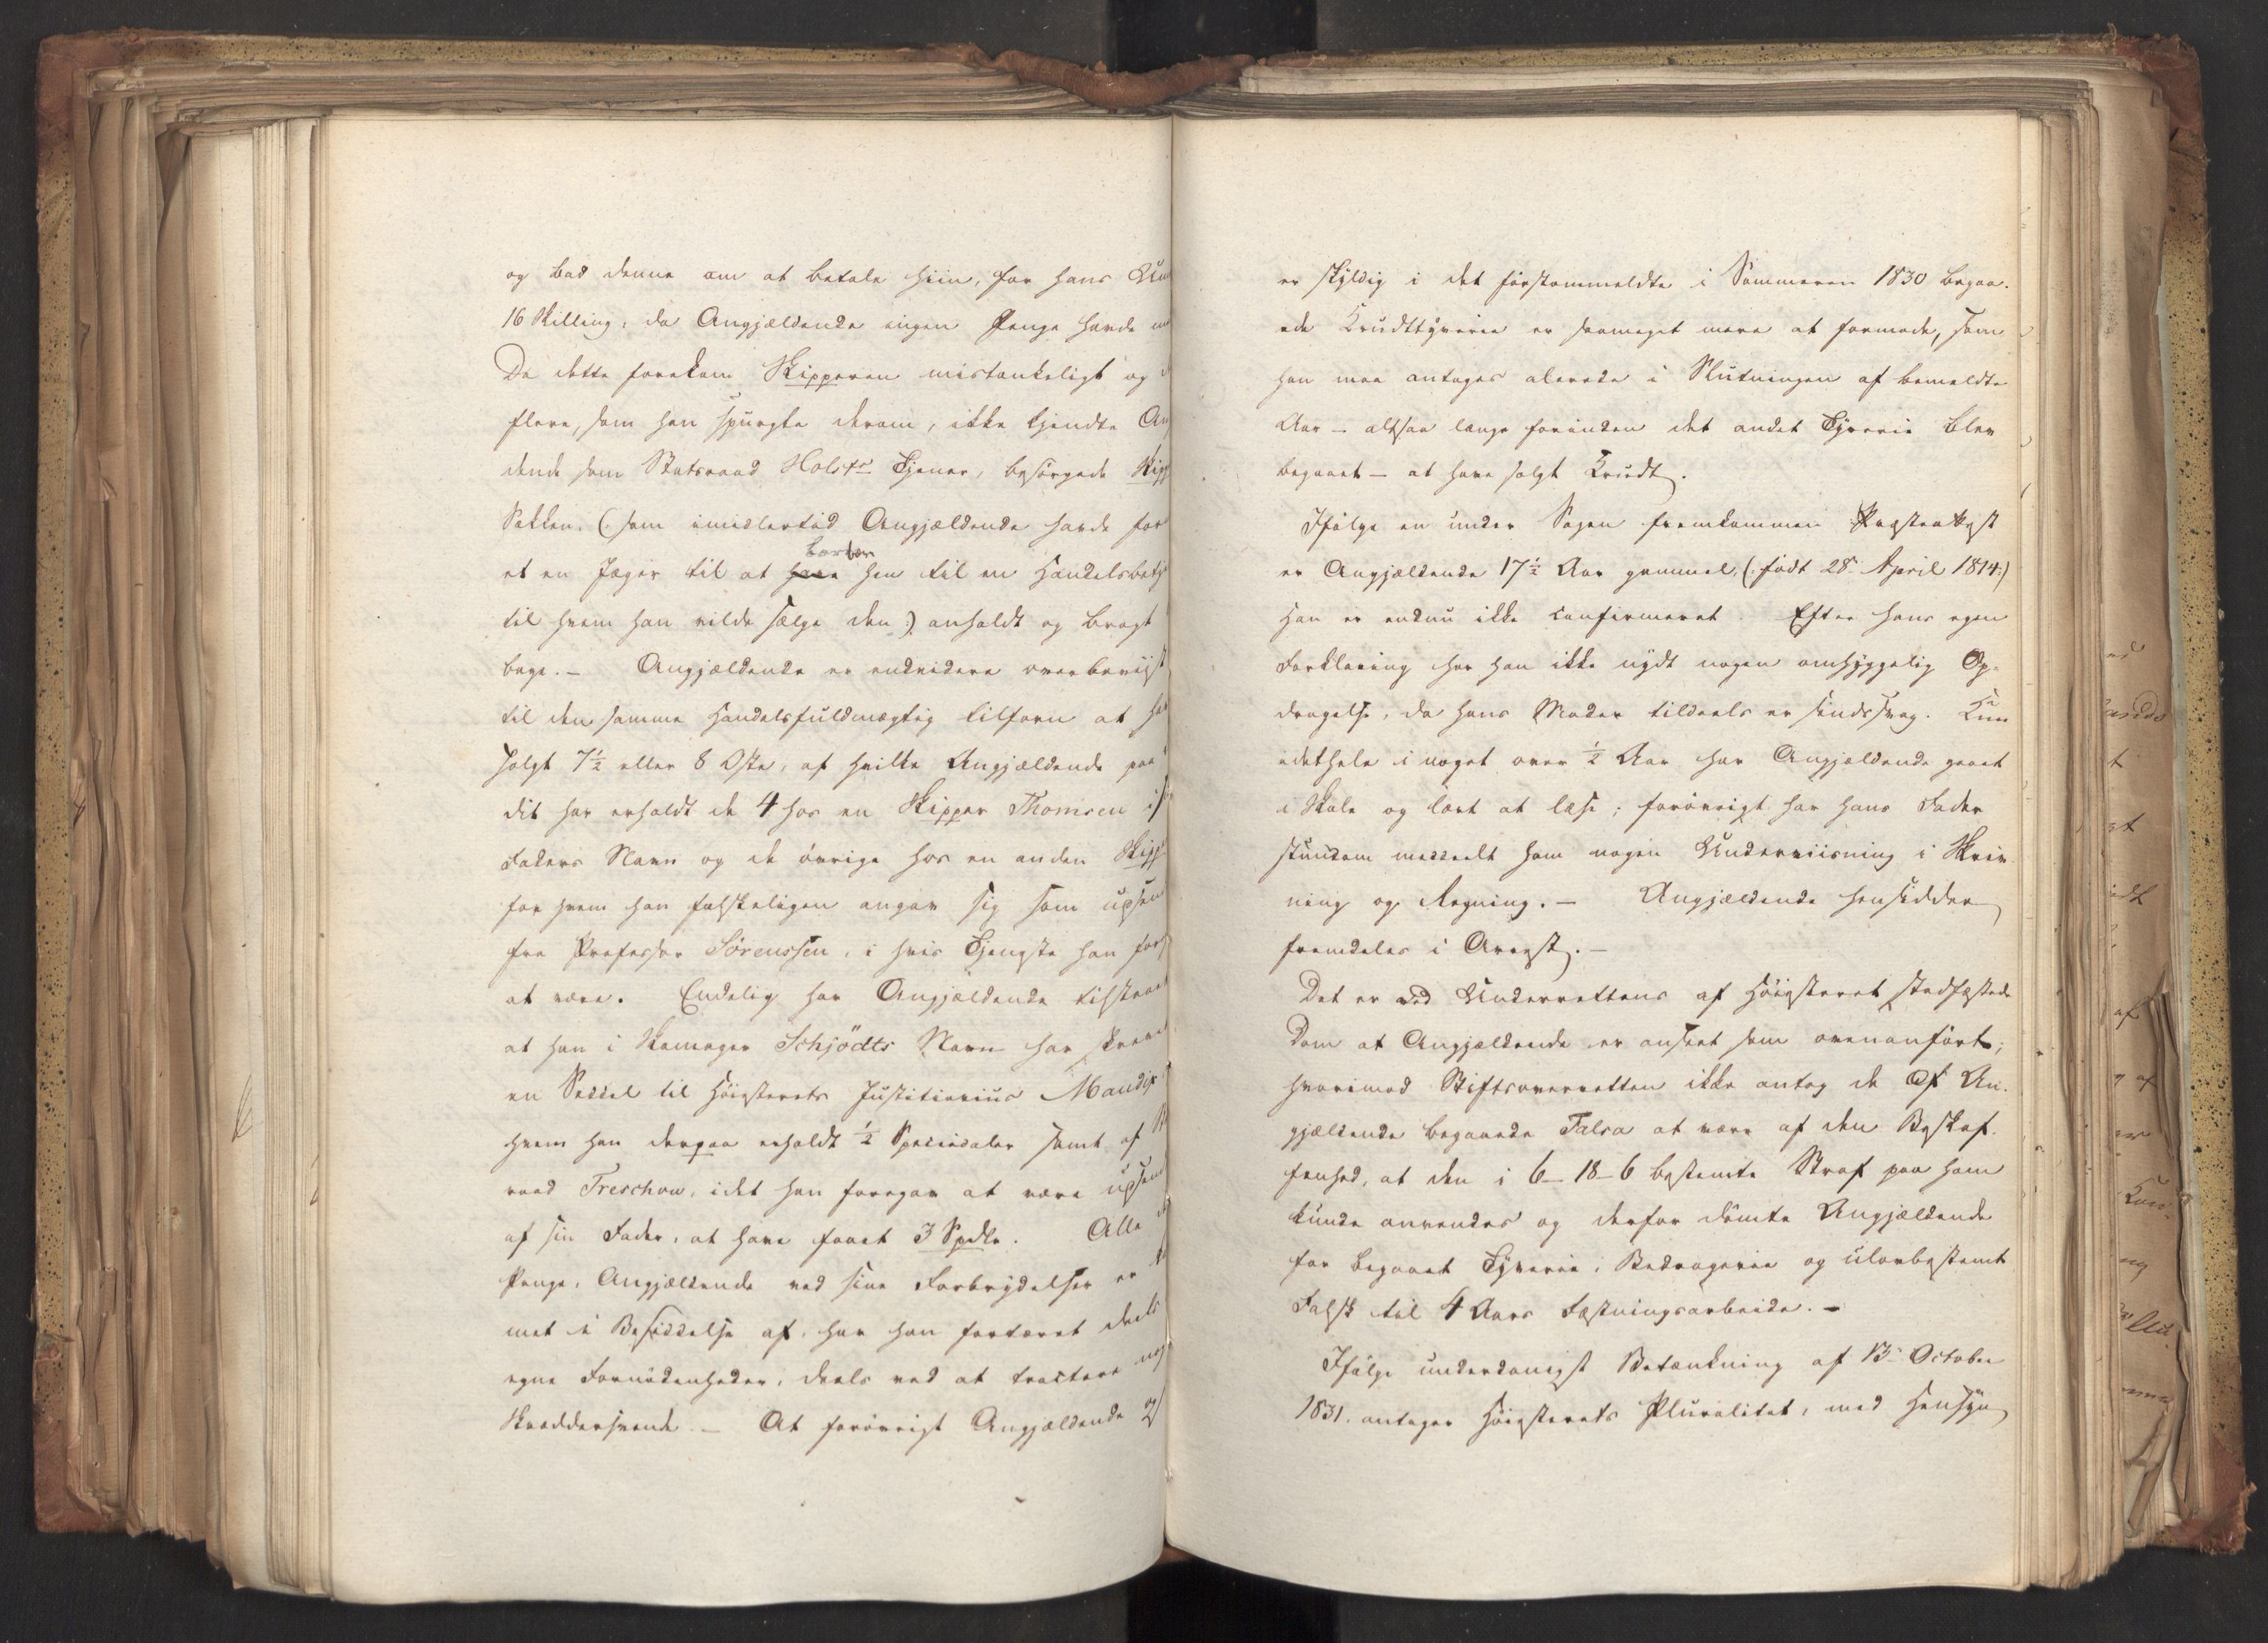 og bad denne om at betale hiin, for hans
16 Skilling, da Angjældende ingen Penge havde
Da dette forekom Skipperen mistænkeligt og
flere, som han spurgte derom, ikke kjendte An
dende som Statsraad Holsts Tjener, besørgede Skipp
Sækken, (: som imidlertid Angjældende havde for
et en Jæger til at bortbære hen til en Handelsbetj
til hvem han vilde sælge den :) anholdt og bragt
bage. – Angjældende er endvidere overbeviist
til den samme Handelsfuldmægtig tilforn at ha
solgt 7½ eller 8 Oste, af hvilke Angjældende paa
dit har erholdt de 4 hos en Skipper Thomsen i
Faders Navn og de øvrige hos en anden Skipp
for hvem han falskeligen angav sig som udsen
fra Professor Sörenssen, i hvis Tjeneste han fore
at være. Endelig har Angjældende tilstaaet
at han i Skomager Schjödts Navn har skrevet
en Seddel til Høiesterets Justitiarius Mandix
hvem han derpaa erholdt ½ Speciedaler samt af
raad Treschow, idet han foregav at være udsend
af sin Fader, at have faaet 3 Spdlr. Alle
Penge, Angjældende ved sine Forbrydelser er
met i Besiddelse af, har han fortæret deels
egne Fornødenheder, deels ved at tractere
Skræddersvende. – At forøvrigt Angjældende og
er skyldig i det førstommeldte i Sommeren 1830 begaa-
ede Krudttyverie er saameget mere at formode, som
han maa antages allerede i Slutningen af bemeldte
Aar – altsaa længe forinden det andet Tyverie blev
begaaet – at have solgt Krudt.
Ifølge en under Sagen fremkommen Præsteattest
er Angjældende 17½ Aar gammel, (: født 28 April 1814 :)
Han er endnu ikke confirmeret. Efter hans egen
Forklaring har han ikke nydt nogen omhyggelig Op-
dragelse, da hans Moder tildeels er sindssvag. Kun
idethele i noget over ½ Aar har Angjældende gaaet
i Skole og lært at læse; forøvrigt har hans Fader
stundom meddeelt ham nogen Underviisning i Skriv-
ning og Regning. – Angjældende hensidder
fremdeles i Arrest. –
Det er ved Underrettens af Høiesteret stadfæstede
Dom at Angjældende er anseet som ovenanført;
hvorimod Stiftsoverretten ikke antog de af An-
gjældende begaaede Falsa at være af den Beskaf-
fenhed, at den i 6–18–6 bestemte Straf paa ham
kunde anvendes og derfor dømte Angjældende
for begaaet Tyverie, Bedragerie og ulovbestemt
Falsk til 4 Aars Fæstningsarbeide. –
Ifølge underdanigst Betænkning af 13 October
1831. antager Høiesterets Pluralitet, med Hensyn